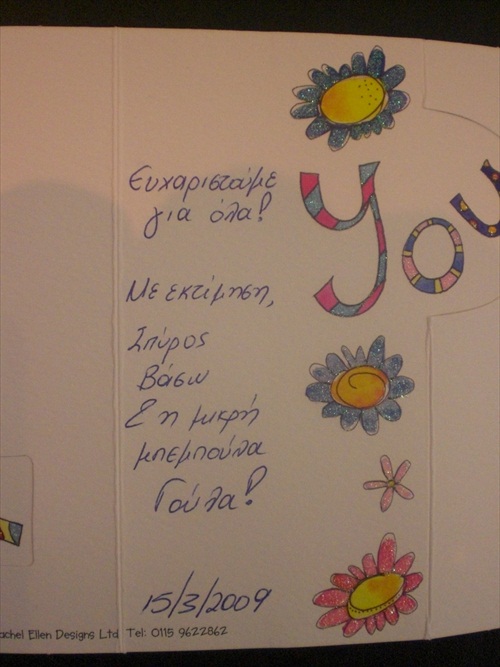 You
Ευχαριστούμε
για όλα!
Με εκτίμηση,
Σπύρος
Βάσω
& η μικρή
μπεμπούλα
Γούλα!
15/3/2009
achel Ellen Designs Ltd Tel: 0115 9622862